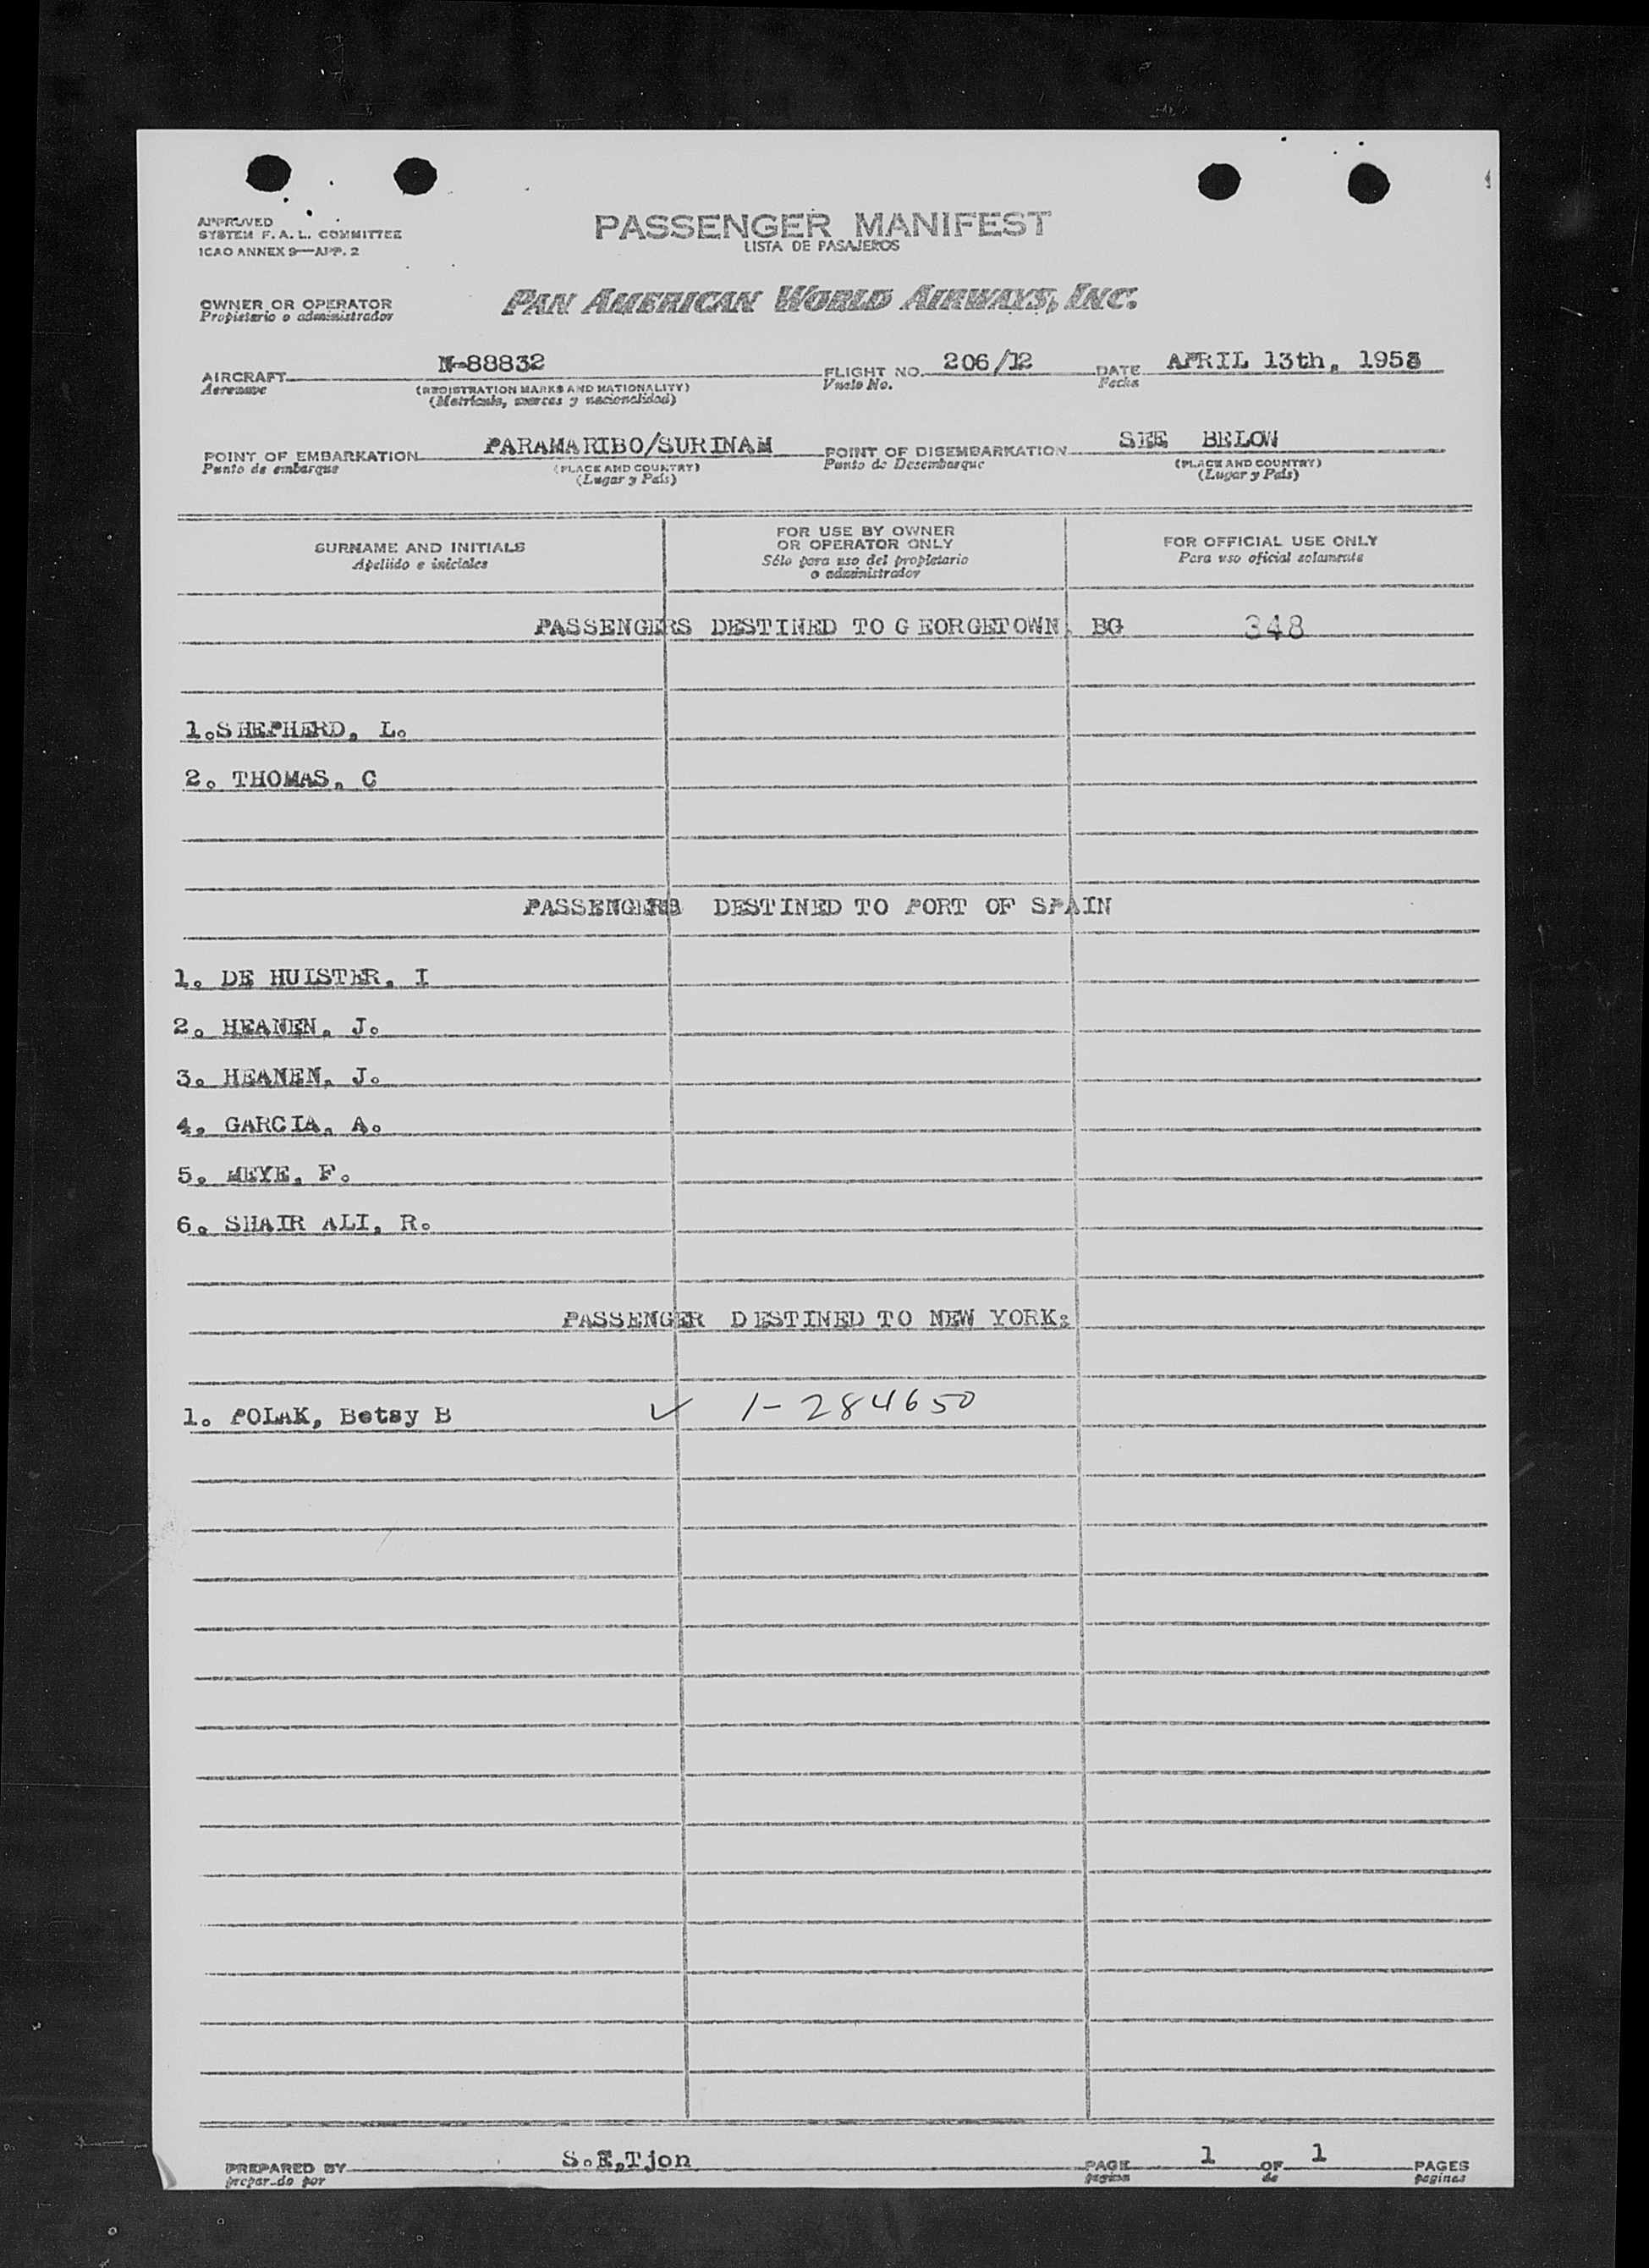 APPROVED
SYSTEM F. A. L. COMMITTEE
ICAO ANNEX 9—APP. 2
PASSENGER MANIFEST
LISTA DE PASAJEROS
OWNER OR OPERATOR
Propietario o administrador
PAN AMERICAN WORLD AIRWAYS, INC.
AIRCRAFT N-88832 FLIGHT NO. 206/12 DATE APRIL 13th, 1958
Aeronave (REGISTRATION MARKS AND NATIONALITY) Vuelo No. Fecha
(Matrícula, marcas y nacionalidad)
POINT OF EMBARKATION PARAMARIBO/SURINAM POINT OF DISEMBARKATION SEE BELOW
Punto de embarque (PLACE AND COUNTRY) Punto de Desembarque (PLACE AND COUNTRY)
(Lugar y País) (Lugar y País)
SURNAME AND INITIALS
Apellido e iniciales
FOR USE BY OWNER
OR OPERATOR ONLY
Sólo para uso del propietario
o administrador
FOR OFFICIAL USE ONLY
Para uso oficial solamente
PASSENGERS DESTINED TO G EORGETOWN, BG 348
1.SHEPHERD, L.
2. THOMAS, C
PASSENGERS DESTINED TO PORT OF SPAIN
1. DE HUISTER, I
2. HEANEN, J.
3. HEANEN, J.
4. GARCIA, A.
5. MEYE, F.
6. SHAIR ALI, R.
PASSENGER DESTINED TO NEW YORK:
1. POLAK, Betsy B ✓ 1-284650
PREPARED BY S.E,Tjon PAGE 1 OF 1 PAGES
preparado por pagina de paginas